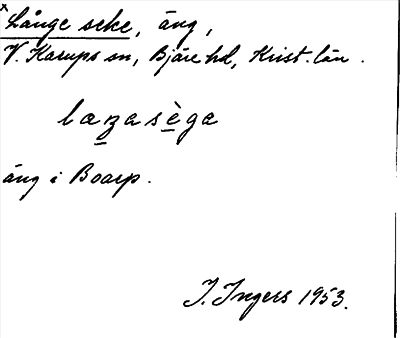 x Långe seke, äng,
V. Karups sn, Bjäre hd, Krist. län.
laŋasèga
äng i Boarp.
I. Ingers 1953.